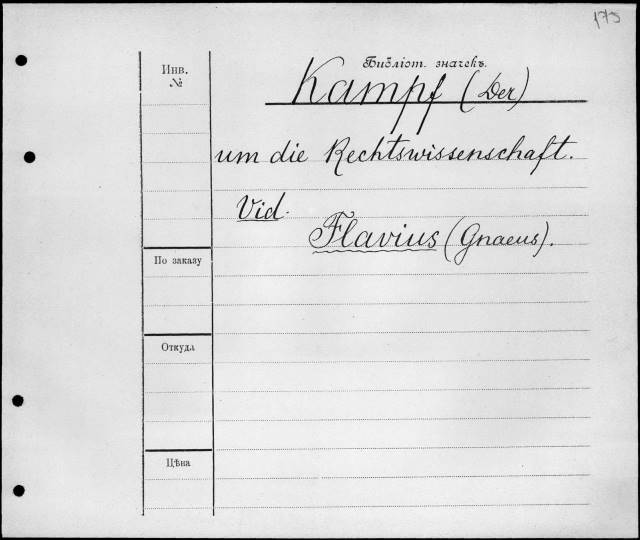 175
Библіот. значекъ.
Инв.
№
Kampf (Der)
um die Rechtswissenschaft.
Vid.
Flavius (Gnaeus).
По заказу
Откуда
Цѣна